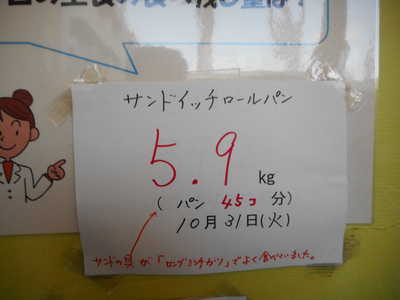 サンドイッチロールパン
5.9 kg
( パン 45コ 分)
10月31日(火)
サンドの具が「ロングミンチカツ」でよく食べていました。